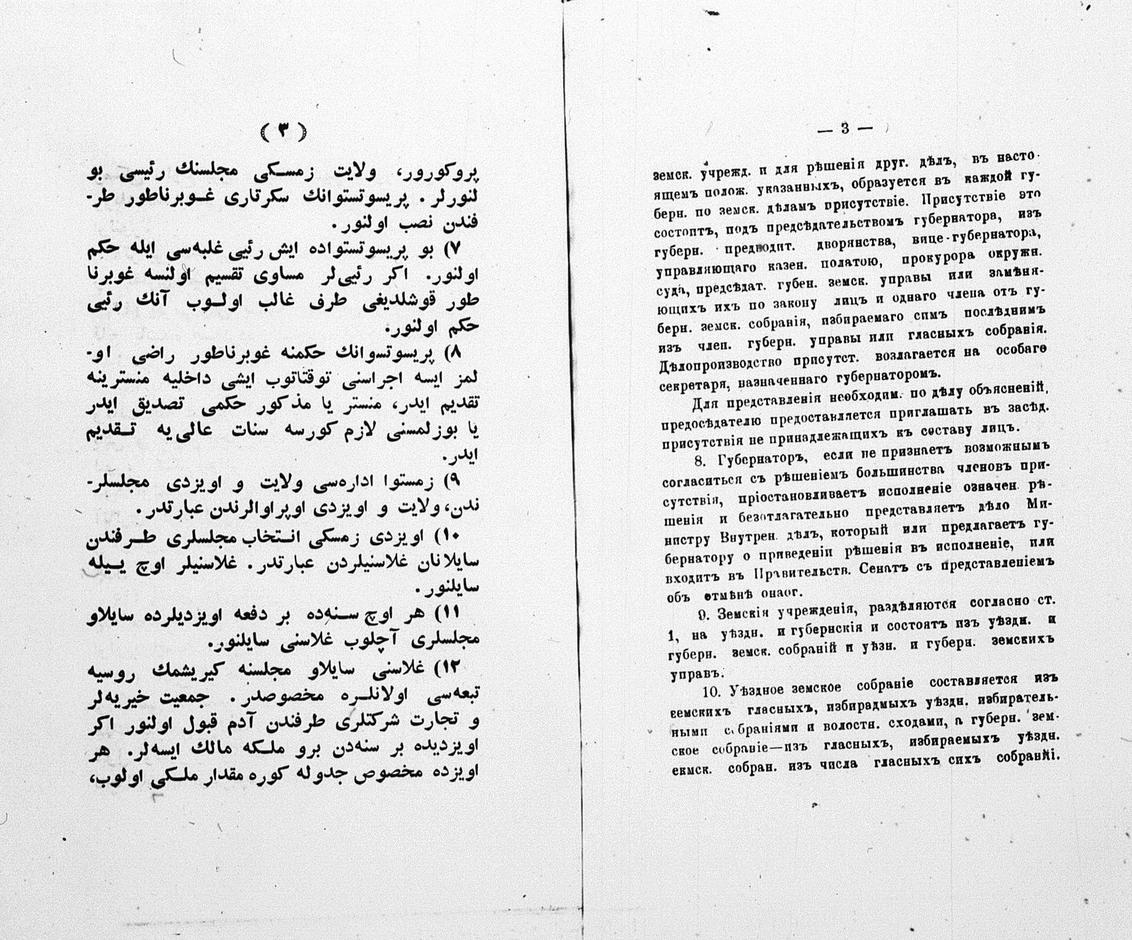 ( ٣ )
پروكورور، ولايت زمسكى مجلسنك رئيسى بو
لنورلر. پريسوتستوانك سكرتارى غوبرناطور طر-
فندن نصب اولنور.
٧) بو پريسوتستواده ايش رئيى غلبه‌سى ايله حكم
اولنور. اكر رئيى‌لر مساوى تقسيم اولنسه غوبرنا
طور قوشلديغى طرف غالب اولوب آنك رئيى
حكم اولنور.
٨) پريسوتسوانك حكمنه غوبرناطور راضى او-
لمز ايسه اجراسنى توقتاتوب ايشى داخليه منسترينه
تقديم ايدر، منستر يا مذكور حكمى تصديق ايدر
يا بوزلمسنى لازم كورسه سنات عالى‌يه تقديم
ايدر.
٩) زمستوا اداره‌سى ولايت و اويزدى مجلسلر-
ندن، ولايت و اويزدى اوپراوالرندن عبارتدر.
١٠) اويزدى زمسكى انتخاب مجلسلرى طرفندن
سايلانان غلاسنيلردن عبارتدر. غلاسنيلر اوچ ييله
سايلنور.
١١) هر اوچ سنه‌ده بر دفعه اويزديلرده سايلاو
مجلسلرى آچلوب غلاسنى سايلنور.
١٢) غلاسنى سايلاو مجلسنه كيريشمك روسيه
تبعه‌سى اولانلره مخصوصدر. جمعيت خيريه‌لر
و تجارت شركتلرى طرفندن آدم قبول اولنور اكر
اويزديده بر سنه‌دن برو ملكه مالك ايسه‌لر. هر
اويزده مخصوص جدوله كوره مقدار ملكى اولوب،
— 3 —
земск. учрежд. и для рѣшенія друг. дѣлъ, въ насто-
ящемъ полож. указанныхъ, образуется въ каждой гу-
берн. по земск. дѣламъ присутствіе. Присутствіе это
состоитъ, подъ предсѣдательствомъ губернатора, изъ
губерн. предводит. дворянства, вице-губернатора,
управляющаго казен. полатою, прокурора окружн.
суда, предсѣдат. губен. земск. управы или замѣня-
ющихъ ихъ по закону лицъ и однаго члена отъ гу-
берн. земск. собранія, избираемаго симъ послѣднимъ
изъ член. губерн. управы или гласныхъ собранія.
Дѣлопроизводство присутст. возлагается на особаго
секретаря, назначеннаго губернаторомъ.
Для представленія необходим. по дѣлу объясненій,
предосѣдателю предоставляется приглашать въ засѣд.
присутствія не принадлежащихъ къ составу лицъ.
8. Губернаторъ, если не признаетъ возможнымъ
согласиться съ рѣшеніемъ большинства членовъ при-
сутствія, пріостановливаетъ исполненіе означен. рѣ-
шенія и безотлагательно представляетъ дѣло Ми-
нистру Внутрен. дѣлъ, который или предлагаетъ гу-
бернатору о приведеніи рѣшенія въ исполненіе, или
входитъ въ Правительств. Сенатъ съ представленіемъ
объ отмѣнѣ онаог.
9. Земскія учрежденія, раздѣляются согласно ст.
1, на уѣздн. и губернскія и состоятъ изъ уѣздн. и
губерн. земск. собраній и уѣзн. и губерн. земскихъ
управъ.
10. Уѣздное земское собраніе составляется изъ
земскихъ гласныхъ, избирадмыхъ уѣздн. избиратель-
ными собраніями и волостн. сходами, а губерн. зем-
ское собраніе—изъ гласныхъ, избираемыхъ уѣздн.
екмск. собран. изъ числа гласныхъ сихъ собранйі.